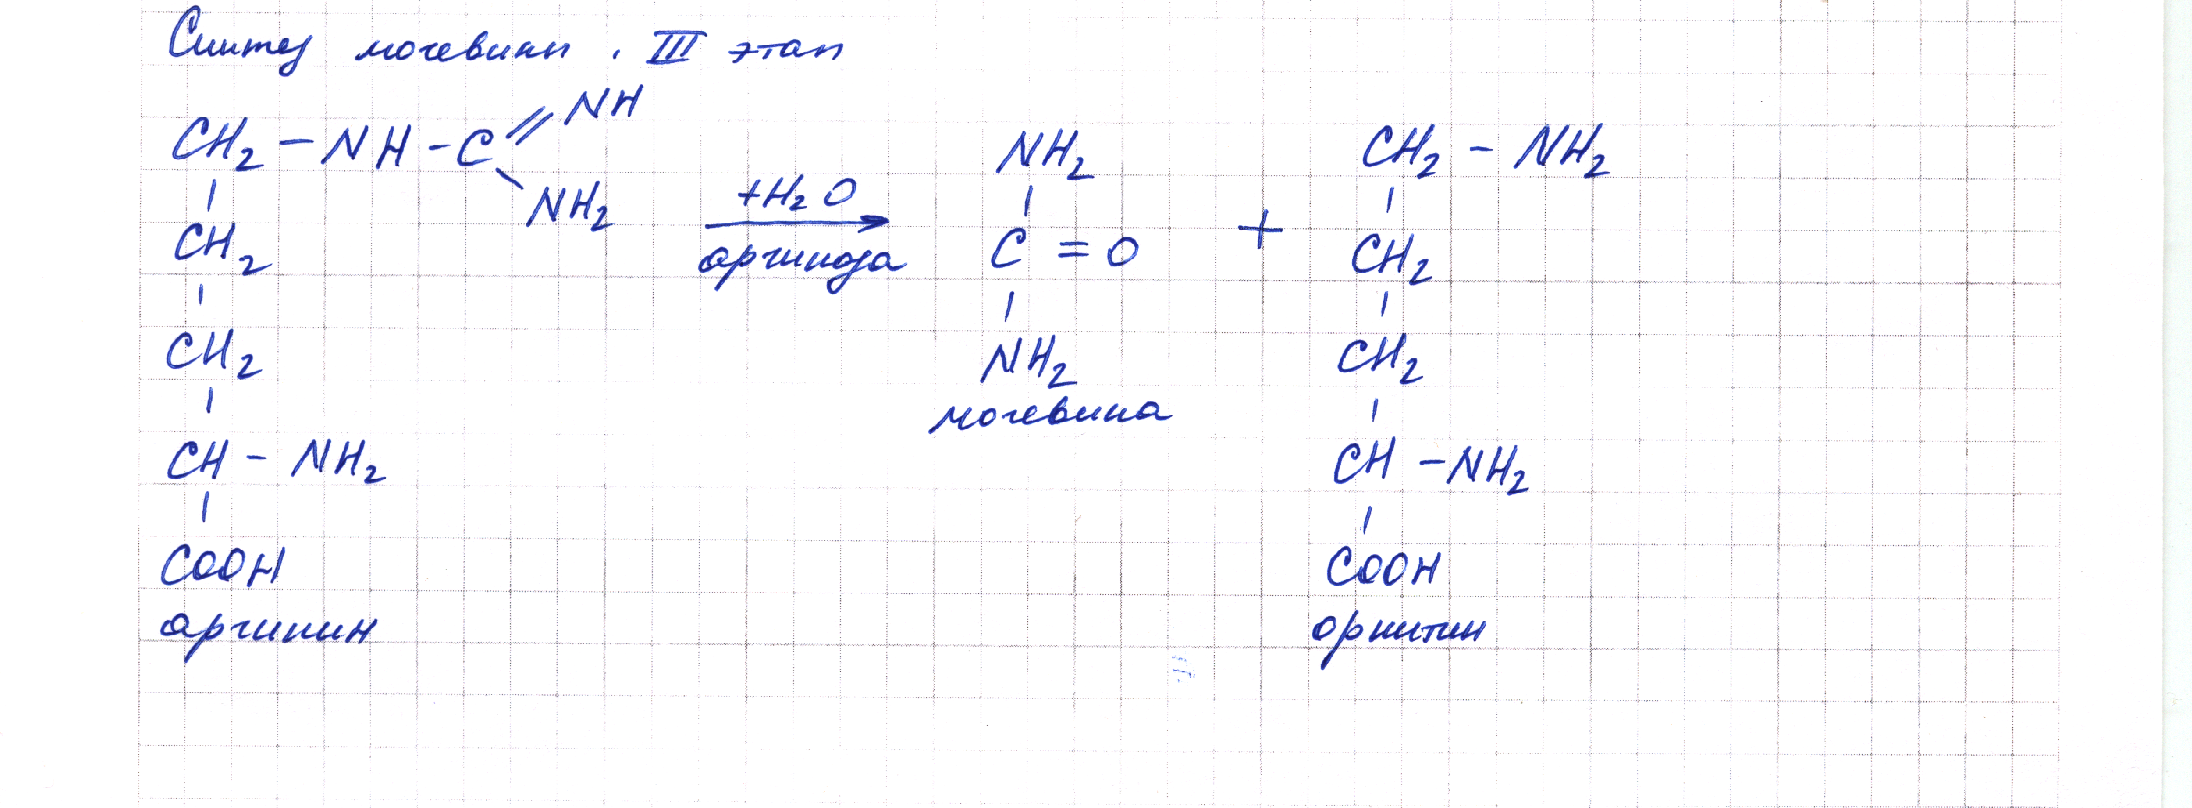 Синтез мочевины. III этап
CH₂ – NH – C = NH
NH₂
CH₂
CH₂
CH – NH₂
COOH
аргинин
+H₂O
аргиназа
NH₂
C = O
NH₂
мочевина
+
CH₂ – NH₂
CH₂
CH₂
CH – NH₂
COOH
орнитин